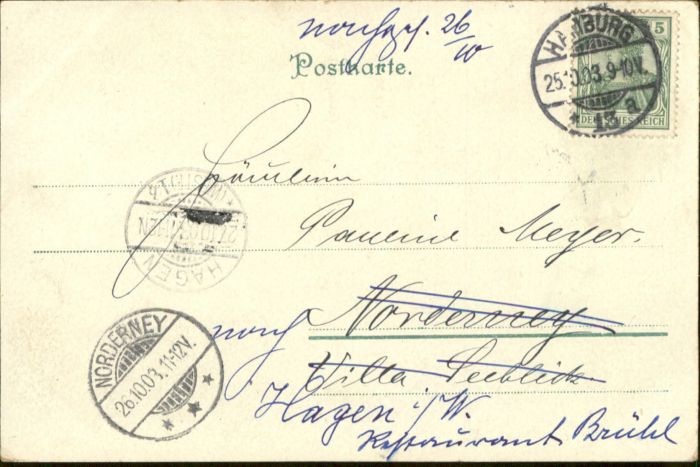 nachges. 26/10
Postkarte.
HAMBURG
25.10.03. 9-10V.
* 13 a
5
DEUTSCHES REICH
Fräulein
Pauline Meyer.
HAGEN
(WESTF.) 1
Norderney
Villa Seeblick
NORDERNEY
26.10.03. 11-12V.
* * *
nach
Hagen i/W.
Restaurant Brühl